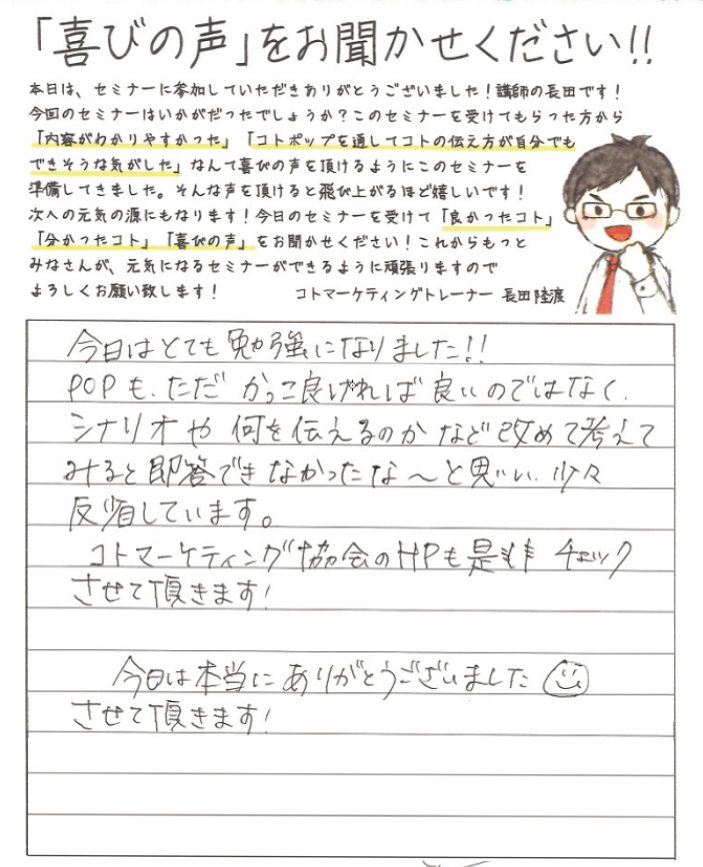 「喜びの声」をお聞かせください!!
本日は、セミナーに参加していただきありがとうございました！講師の長田です！
今回のセミナーはいかがだったでしょうか？このセミナーを受けてもらった方から
「内容がわかりやすかった」「コトポップを通してコトの伝え方が自分でも
できそうな気がした」なんて喜びの声を頂けるようにこのセミナーを
準備してきました。そんな声を頂けると飛び上がるほど嬉しいです！
次への元気の源にもなります！今日のセミナーを受けて「良かったコト」
「分かったコト」「喜びの声」をお聞かせください！これからもっと
みなさんが、元気になるセミナーができるように頑張りますので
よろしくお願い致します！
コトマーケティングトレーナー 長田 陸渡
今日はとても勉強になりました!!
POPも、ただ かっこ良ければ 良いのではなく、
シナリオや 何を伝えるのか など 改めて考えて
みると即答できなかったな〜と思い、少々
反省しています。
コトマーケティング協会のHPも是非 チェック
させて頂きます!
今日は本当に ありがとうございました
させて頂きます!